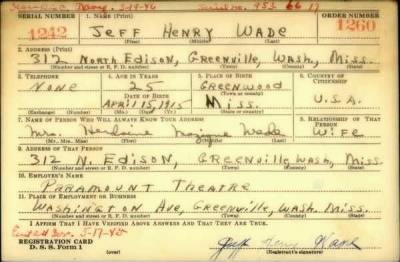 SERIAL NUMBER 1. NAME (Print) ORDER NUMBER
1242 JEFF HENRY WADE 1260
(First) (Middle) (Last)
2. ADDRESS (Print)
312 NORTH EDISON, GREENVILLE, WASH, MISS.
(Number and street or R. F. D. number) (Town) (County) (State)
3. TELEPHONE 4. AGE IN YEARS 5. PLACE OF BIRTH 6. COUNTRY OF CITIZENSHIP
NONE 25 GREENWOOD
DATE OF BIRTH (Town or county)
APRIL 15, 1915 MISS. U.S.A.
(Exchange) (Number) (Mo.) (Day) (Yr.) (State or country)
7. NAME OF PERSON WHO WILL ALWAYS KNOW YOUR ADDRESS 8. RELATIONSHIP OF THAT PERSON
Mrs. Wade WIFE
(Mr., Mrs., Miss) (First) (Middle) (Last)
9. ADDRESS OF THAT PERSON
312 N. EDISON, GREENVILLE, WASH, MISS.
(Number and street or R. F. D. number) (Town) (County) (State)
10. EMPLOYER'S NAME
PARAMOUNT THEATRE
11. PLACE OF EMPLOYMENT OR BUSINESS
WASHINGTON AVE, GREENVILLE, WASH. MISS.
(Number and street or R. F. D. number) (Town) (County) (State)
I AFFIRM THAT I HAVE VERIFIED ABOVE ANSWERS AND THAT THEY ARE TRUE.
REGISTRATION CARD Jeff Henry Wade
D. S. S. Form 1 (over) (Registrant's signature)